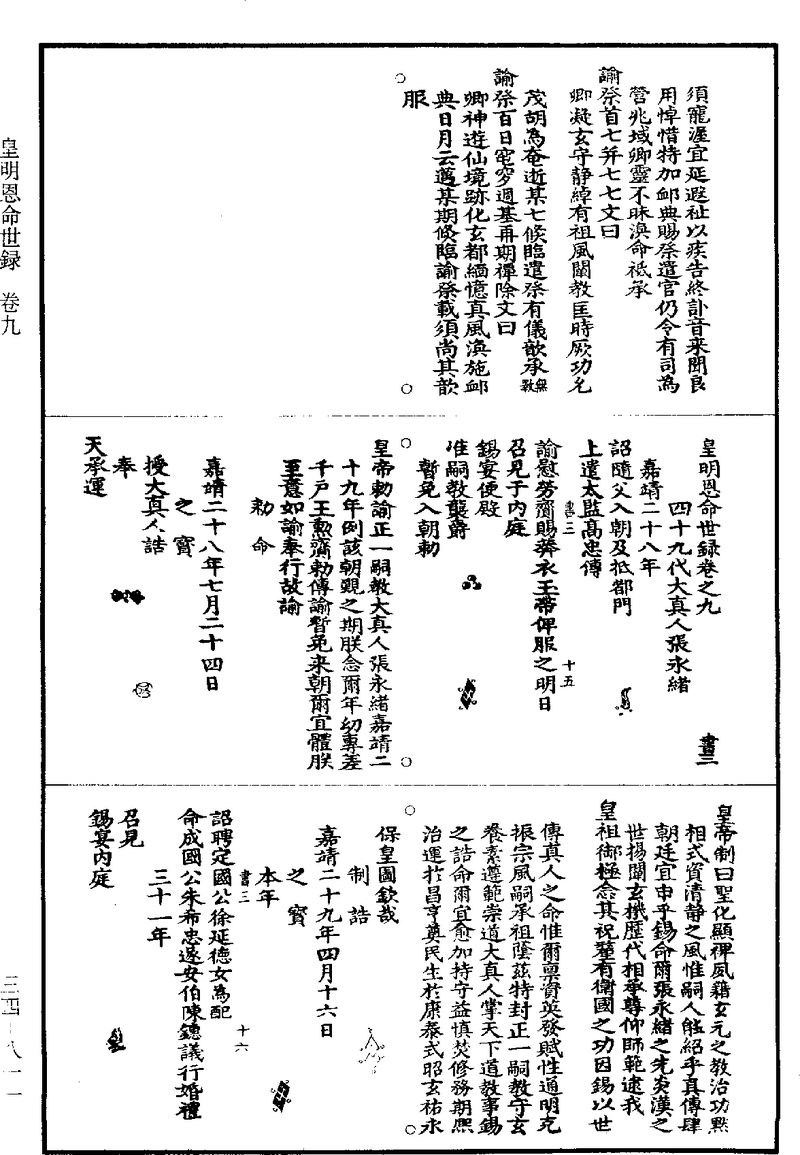 須寵渥宜延遐祉以疾告終訃音来聞良
用悼惜特加䘏典賜祭遣官仍令有司為
營兆域卿靈不昧渙命祗承
諭祭首七并七七文曰
卿凝玄守静綽有祖風闡教匡時厥功尤
茂胡為奄逝某七倐臨遣祭有儀歆承無斁
諭祭百日窀穸週基再期禫除文曰
卿神遊仙境跡化玄都緬憶真風渙施䘏
典日月云邁某期倐臨諭祭載須尚其歆
服
皇明恩命世録卷之九
書三
四十九代大真人張永緒
嘉靖二十八年
詔隨父入朝及抵都門
上遣太監高忠傳
書三
十五
諭慰勞齎賜蟒衣玉帶俾服之明日
召見于内庭
錫宴便殿
准嗣教襲爵
暫免入朝勅
皇帝勅諭正一嗣教大真人張永緒嘉靖二
十九年例該朝覲之期朕念爾年幼專差
千戸王勲齎勅傳諭暫免来朝爾宜體朕
至意如諭奉行故諭
勅命
嘉靖二十八年七月二十四日
之寳
授大真人誥
奉
天承運
皇帝制曰聖化顯禆夙藉玄元之教治功黙
相式資清静之風惟嗣人能紹乎真傳肆
朝廷宜申乎錫命爾張永緒之先炎漢之
世揚闡玄機歴代相承尊仰師範逮我
皇祖御極念其祝釐有衛國之功因錫以世
傳真人之命惟爾禀資英發賦性通明克
振宗風嗣承祖蔭兹特封正一嗣教守玄
養素遵範崇道大真人掌天下道教事錫
之誥命爾宜愈加持守益慎焚修務期熈
治運於昌亨奠民生於康泰式昭玄祐永
保皇圖欽哉
制誥
嘉靖二十九年四月十六日
之寳
本年
書三
十六
詔聘定國公徐延德女為配
命成國公朱希忠遂安伯陳鏸議行婚禮
三十一年
召見
錫宴内庭
皇明恩命世録 卷九
三四－八一一